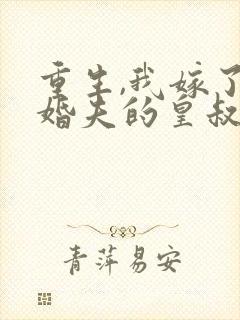 重生,我嫁了
婚夫的皇叔
青萍易安